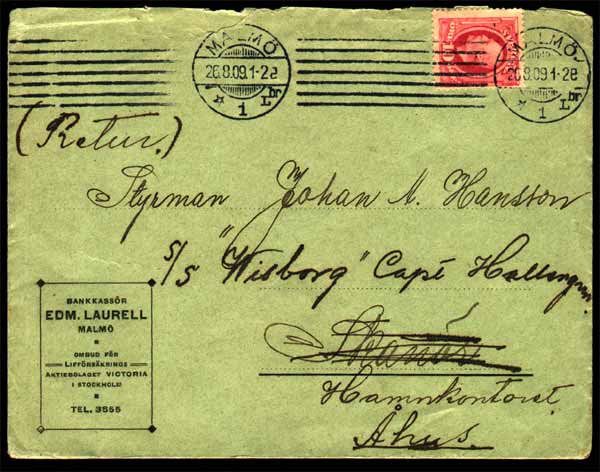 MALMÖ
26.8.09.1-2E
1
Lbr
MALMÖ
26.8.09.1-2E
1
Lbr
(Retur.)
Styrman Johan N. Hansson
S/S "Wisborg" Capt Hallengren
Skanör
Hamnkontoret
Åhus.
BANKKASSÖR
EDM. LAURELL
MALMÖ
OMBUD FÖR
LIFFÖRSÄKRINGS
AKTIEBOLAGET VICTORIA
I STOCKHOLM
TEL. 3555